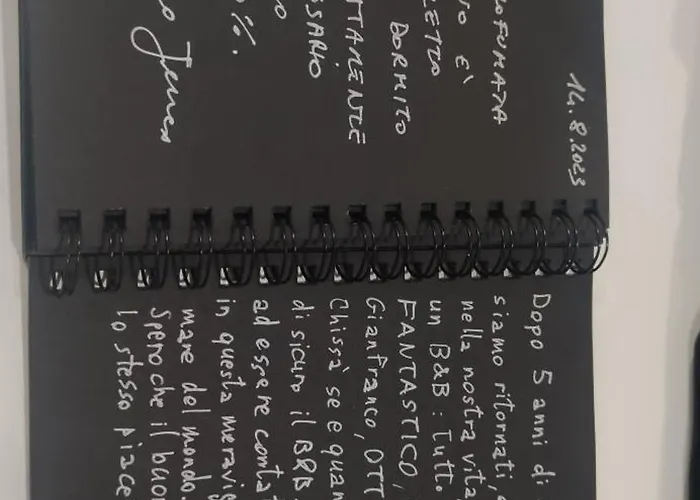 14.8.2023
OFUMATA
VO E'
LETTO
DORMITO
TTAMENTE
SSARIO
O
%.
Dopo 5 anni di
siamo ritornati,
nella nostra vita
un B&B: Tutt.
FANTASTICO,
Gianfranco, OTT
Chissà se e quan
di sicuro il B&B
ad essere conta
in questa meravig
mare del mondo.
Spero che il buo
lo stesso piace